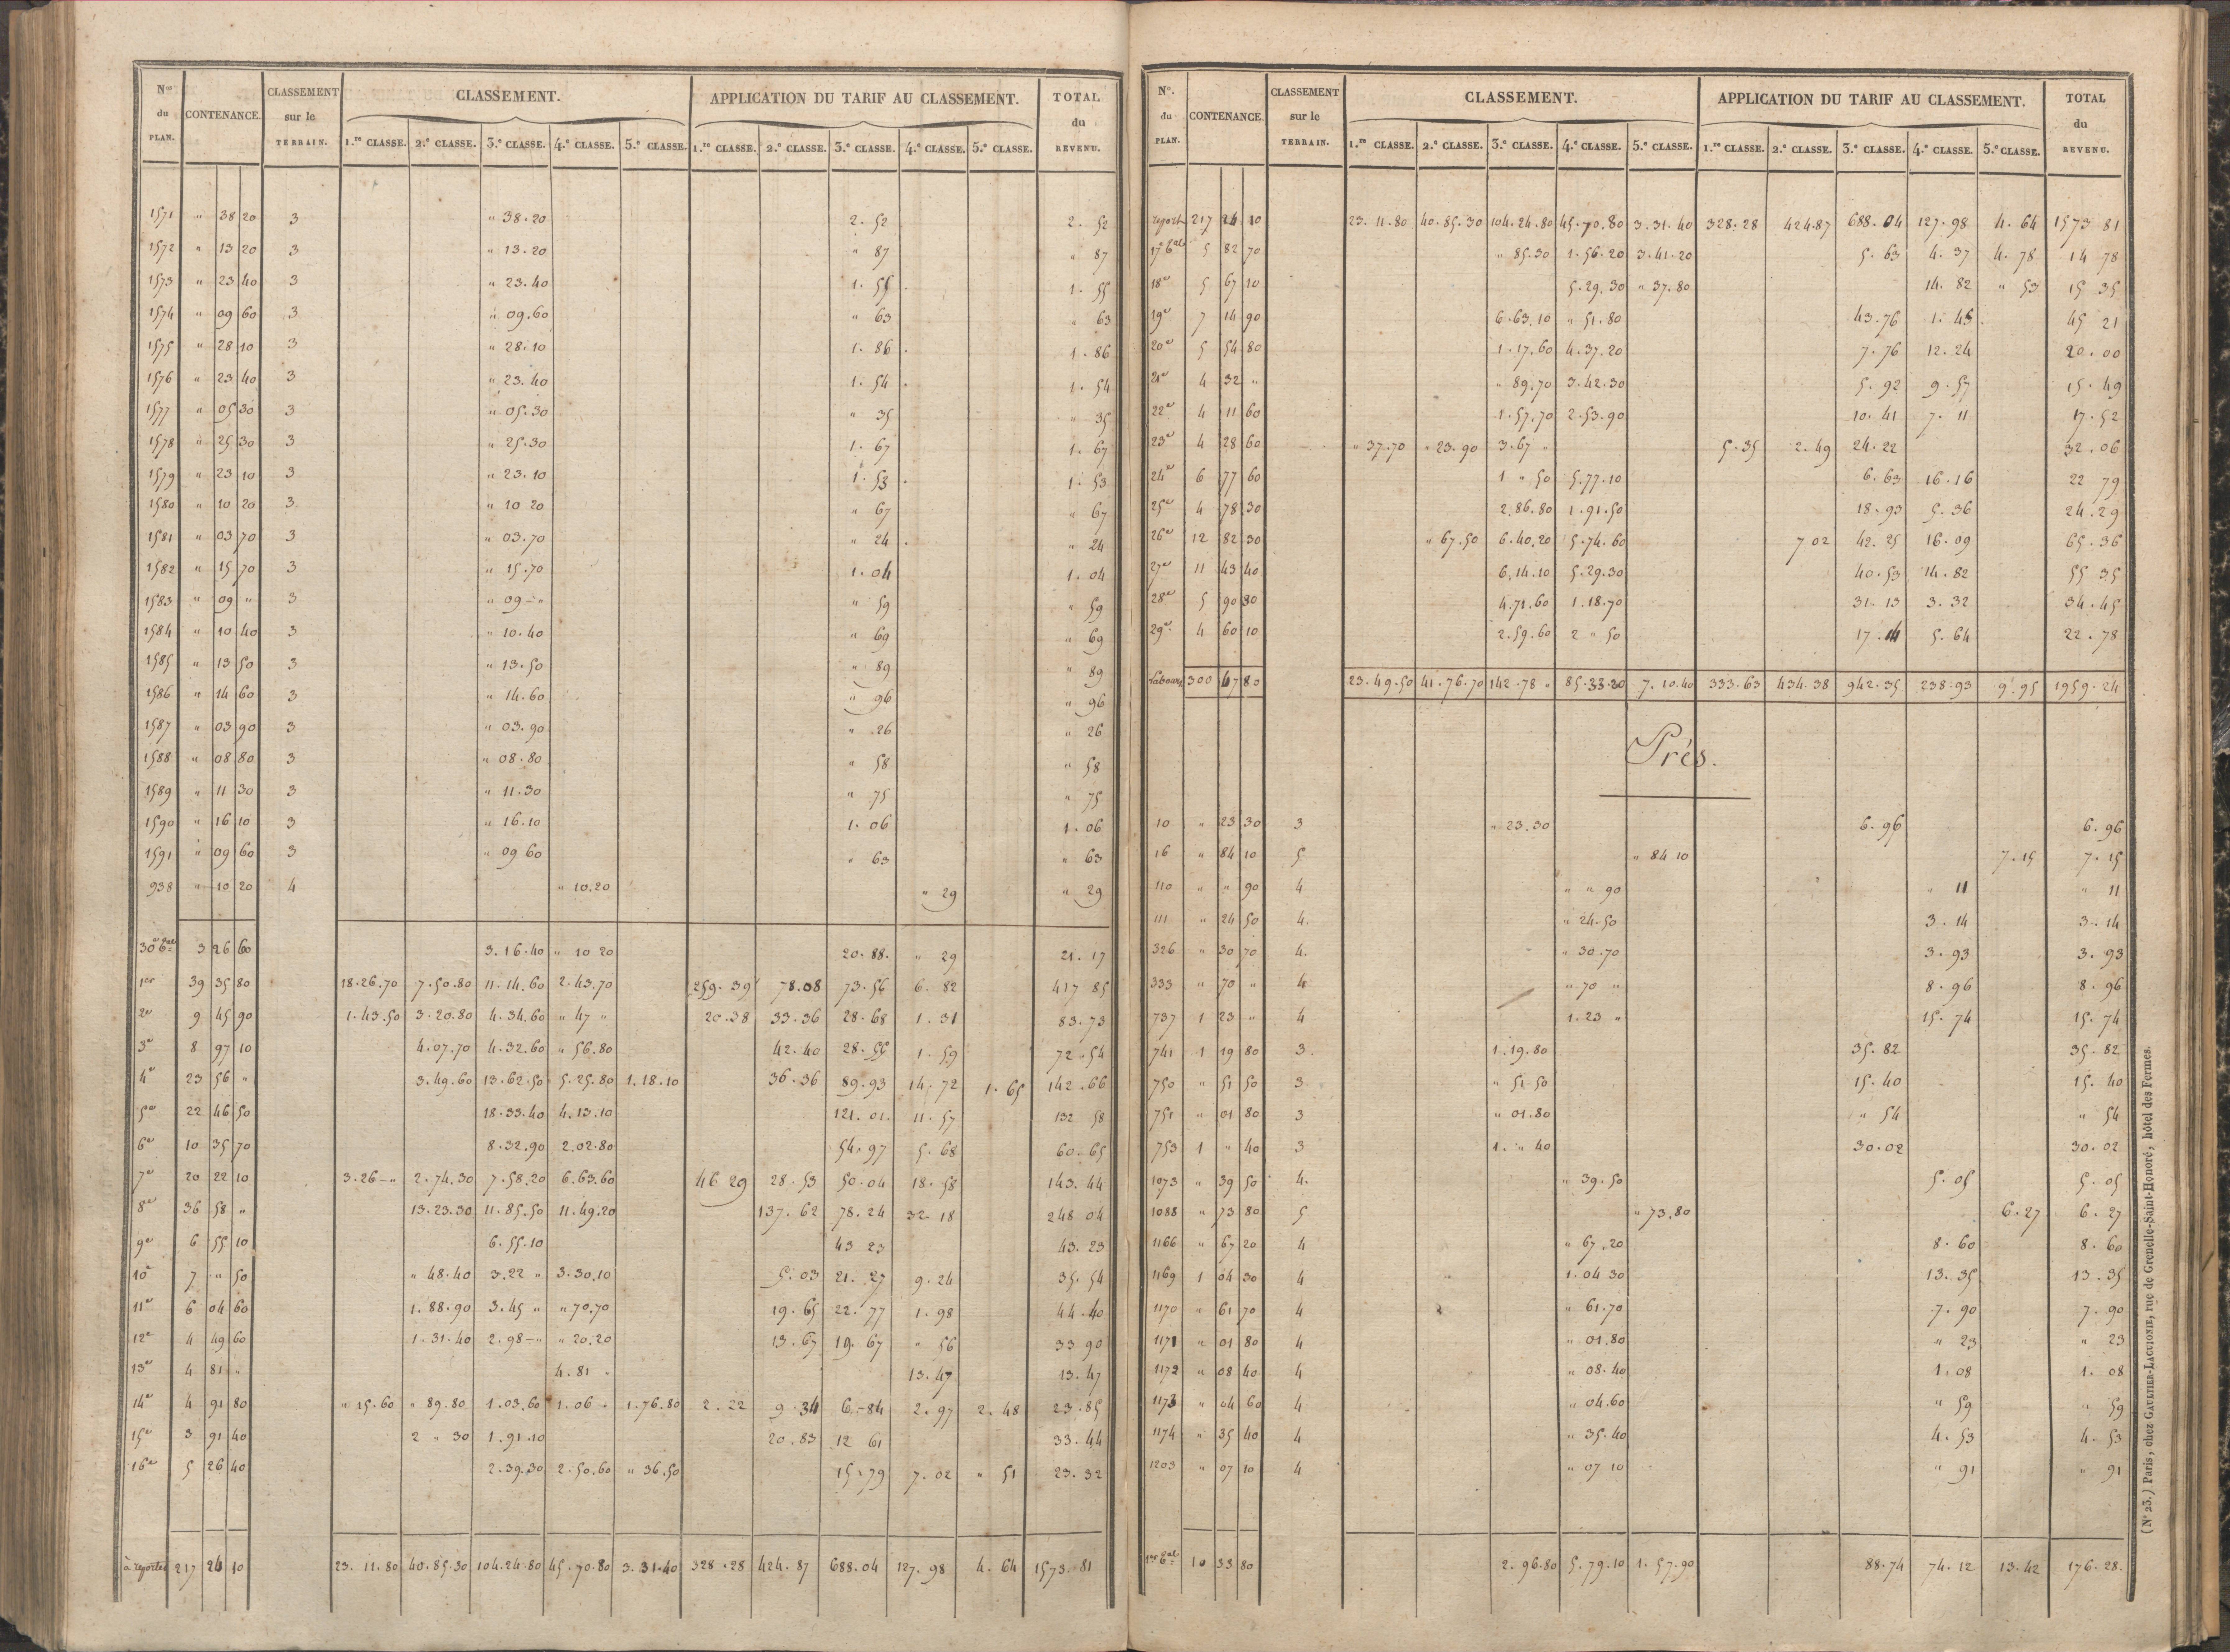 Nos du PLAN. CONTENANCE. CLASSEMENT sur le TERRAIN. CLASSEMENT. APPLICATION DU TARIF AU CLASSEMENT. TOTAL du REVENU.
1.re CLASSE. 2.e CLASSE. 3.e CLASSE. 4.e CLASSE. 5.e CLASSE. 1.re CLASSE. 2.e CLASSE. 3.e CLASSE. 4.e CLASSE. 5.e CLASSE.
1571 " 38 20 3 " 38.20 2.52 2.52
1572 " 13 20 3 " 13.20 " 87 " 87
1573 " 23 40 3 " 23.40 1.55 1.55
1574 " 09 60 3 " 09.60 " 63 " 63
1575 " 28 10 3 " 28.10 1.86 1.86
1576 " 23 40 3 " 23.40 1.54 1.54
1577 " 05 30 3 " 05.30 " 35 " 35
1578 " 25 30 3 " 25.30 1.67 1.67
1579 " 23 10 3 " 23.10 1.53 1.53
1580 " 10 20 3 " 10 20 " 67 " 67
1581 " 03 70 3 " 03.70 " 24 " 24
1582 " 15 70 3 " 15.70 1.04 1.04
1583 " 09 " 3 " 09 - " " 59 " 59
1584 " 10 40 3 " 10.40 " 69 " 69
1585 " 13 50 3 " 13.50 " 89 " 89
1586 " 14 60 3 " 14.60 " 96 " 96
1587 " 03 90 3 " 03.90 " 26 " 26
1588 " 08 80 3 " 08.80 " 58 " 58
1589 " 11 30 3 " 11.30 " 75 " 75
1590 " 16 10 3 " 16.10 1.06 1.06
1591 " 09 60 3 " 09 60 " 63 " 63
938 " 10 20 4 " 10.20 " 29 " 29
30e bal 3 26 60 3.16.40 " 10 20 20.88. " 29 21.17
1er 39 35 80 18.26.70 7.50.80 11.14.60 2.43.70 259.39 78.08 73.56 6.82 417 85
2e 9 45 90 1.43.50 3.20.80 4.34.60 " 47 " 20.38 33.36 28.68 1.31 83.73
3e 8 97 10 4.07.70 4.32.60 " 56.80 42.40 28.55 1.59 72.54
4e 23 56 " 3.49.60 13.62.50 5.25.80 1.18.10 36.36 89.93 14.72 1.65 142.66
5e 22 46 50 18.33.40 4.13.10 121.01. 11.57 132 58
6e 10 35 70 8.32.90 2.02.80 54.97 5.68 60.65
7e 20 22 10 3.26 - " 2.74.30 7.58.20 6.63.60 46 29 28.53 50.04 18.58 143.44
8e 36 58 " 13.23.30 11.85.50 11.49.20 137.62 78.24 32.18 248 04
9e 6 55 10 6.55.10 43 23 43.23
10e 7 " 50 " 48.40 3.22 " 3.30.10 5.03 21.27 9.24 35.54
11e 6 04 60 1.88.90 3.45 " " 70.70 19.65 22.77 1.98 44.40
12e 4 49 60 1.31.40 2.98 - " " 20.20 13.67 19.67 " 56 33 90
13e 4 81 " 4.81 " 13.47 13.47
14e 4 91 80 " 15.60 " 89.80 1.03.60 1.06 " 1.76.80 2.22 9.34 6.84 2.97 2.48 23.85
15e 3 91 40 2 " 30 1.91.10 20.83 12 61 33.44
16e 5 26 40 2.39.30 2.50.60 " 36.50 15.79 7.02 " 51 23.32
à reporter 217 24 10 23.11.80 40.85.30 104.24.80 45.70.80 3.31.40 328.28 424.87 688.04 127.98 4.64 1573.81
No. du PLAN. CONTENANCE. CLASSEMENT sur le TERRAIN. CLASSEMENT. APPLICATION DU TARIF AU CLASSEMENT. TOTAL du REVENU.
1.re CLASSE. 2.e CLASSE. 3.e CLASSE. 4.e CLASSE. 5.e CLASSE. 1.re CLASSE. 2.e CLASSE. 3.e CLASSE. 4.e CLASSE. 5.e CLASSE.
report 217 24 10 23.11.80 40.85.30 104.24.80 45.70.80 3.31.40 328.28 424.87 688.04 127.98 4.64 1573 81
17e bal 5 82 70 " 85.30 1.56.20 3.41.20 5.63 4.37 4.78 14 78
18e 5 67 10 5.29.30 " 37.80 14.82 " 53 15 35
19e 7 14 90 6.63.10 " 51.80 43.76 1.45 45 21
20e 5 54 80 1.17.60 4.37.20 7.76 12.24 20.00
21e 4 32 " " 89.70 3.42.30 5.92 9.57 15.49
22e 4 11 60 1.57.70 2.53.90 10.41 7.11 17.52
23e 4 28 60 " 37.70 " 23.90 3.67 " 5.35 2.49 24.22 32.06
24e 6 77 60 1 " 50 5.77.10 6.63 16.16 22 79
25e 4 78 30 2.86.80 1.91.50 18.93 5.36 24.29
26e 12 82 30 " 67.50 6.40.20 5.74.60 7 02 42.25 16.09 65.36
27e 11 43 40 6.14.10 5.29.30 40.53 14.82 55 35
28e 5 90 30 4.71.60 1.18.70 31.13 3.32 34.45
29e 4 60 10 2.59.60 2 " 50 17.14 5.64 22.78
Labours 300 47 80 23.49.50 41.76.70 142.78 " 85.33.20 7.10.40 333.63 434.38 942.35 238.93 9.95 1959.24
Prés.
10 " 23 30 3 " 23.30 6.96 6.96
16 " 84 10 5 " 84 10 7.15 7.15
110 " " 90 4 " " 90 " 11 " 11
111 " 24 50 4. " 24.50 3.14 3.14
326 " 30 70 4. " 30.70 3.93 3.93
333 " 70 " 4 " 70 " 8.96 8.96
737 1 23 " 4 1.23 " 15.74 15.74
741 1 19 80 3. 1.19.80 35.82 35.82
750 " 51 50 3 " 51 50 15.40 15.40
751 " 01 80 3 " 01.80 " 54 " 54
753 1 " 40 3 1. " 40 30.02 30.02
1073 " 39 50 4. " 39.50 5.05 5.05
1088 " 73 80 5 " 73.80 6.27 6.27
1166 " 67 20 4 " 67.20 8.60 8.60
1169 1 04 30 4 1.04 30 13.35 13.35
1170 " 61 70 4 " 61.70 7.90 7.90
1171 " 01 80 4 " 01.80 " 23 " 23
1172 " 08 40 4 " 08.40 1.08 1.08
1173 " 04 60 4 " 04.60 " 59 " 59
1174 " 35 40 4 " 35.40 4.53 4.53
1203 " 07 10 4 " 07 10 " 91 " 91
1re bal 10 33 80 2.96.80 5.79.10 1.57.90 88.74 74.12 13.42 176.28.
(No 23.) Paris, chez GAULTIER-LAGUIONIE, rue de Grenelle-Saint-Honoré, hôtel des Fermes.